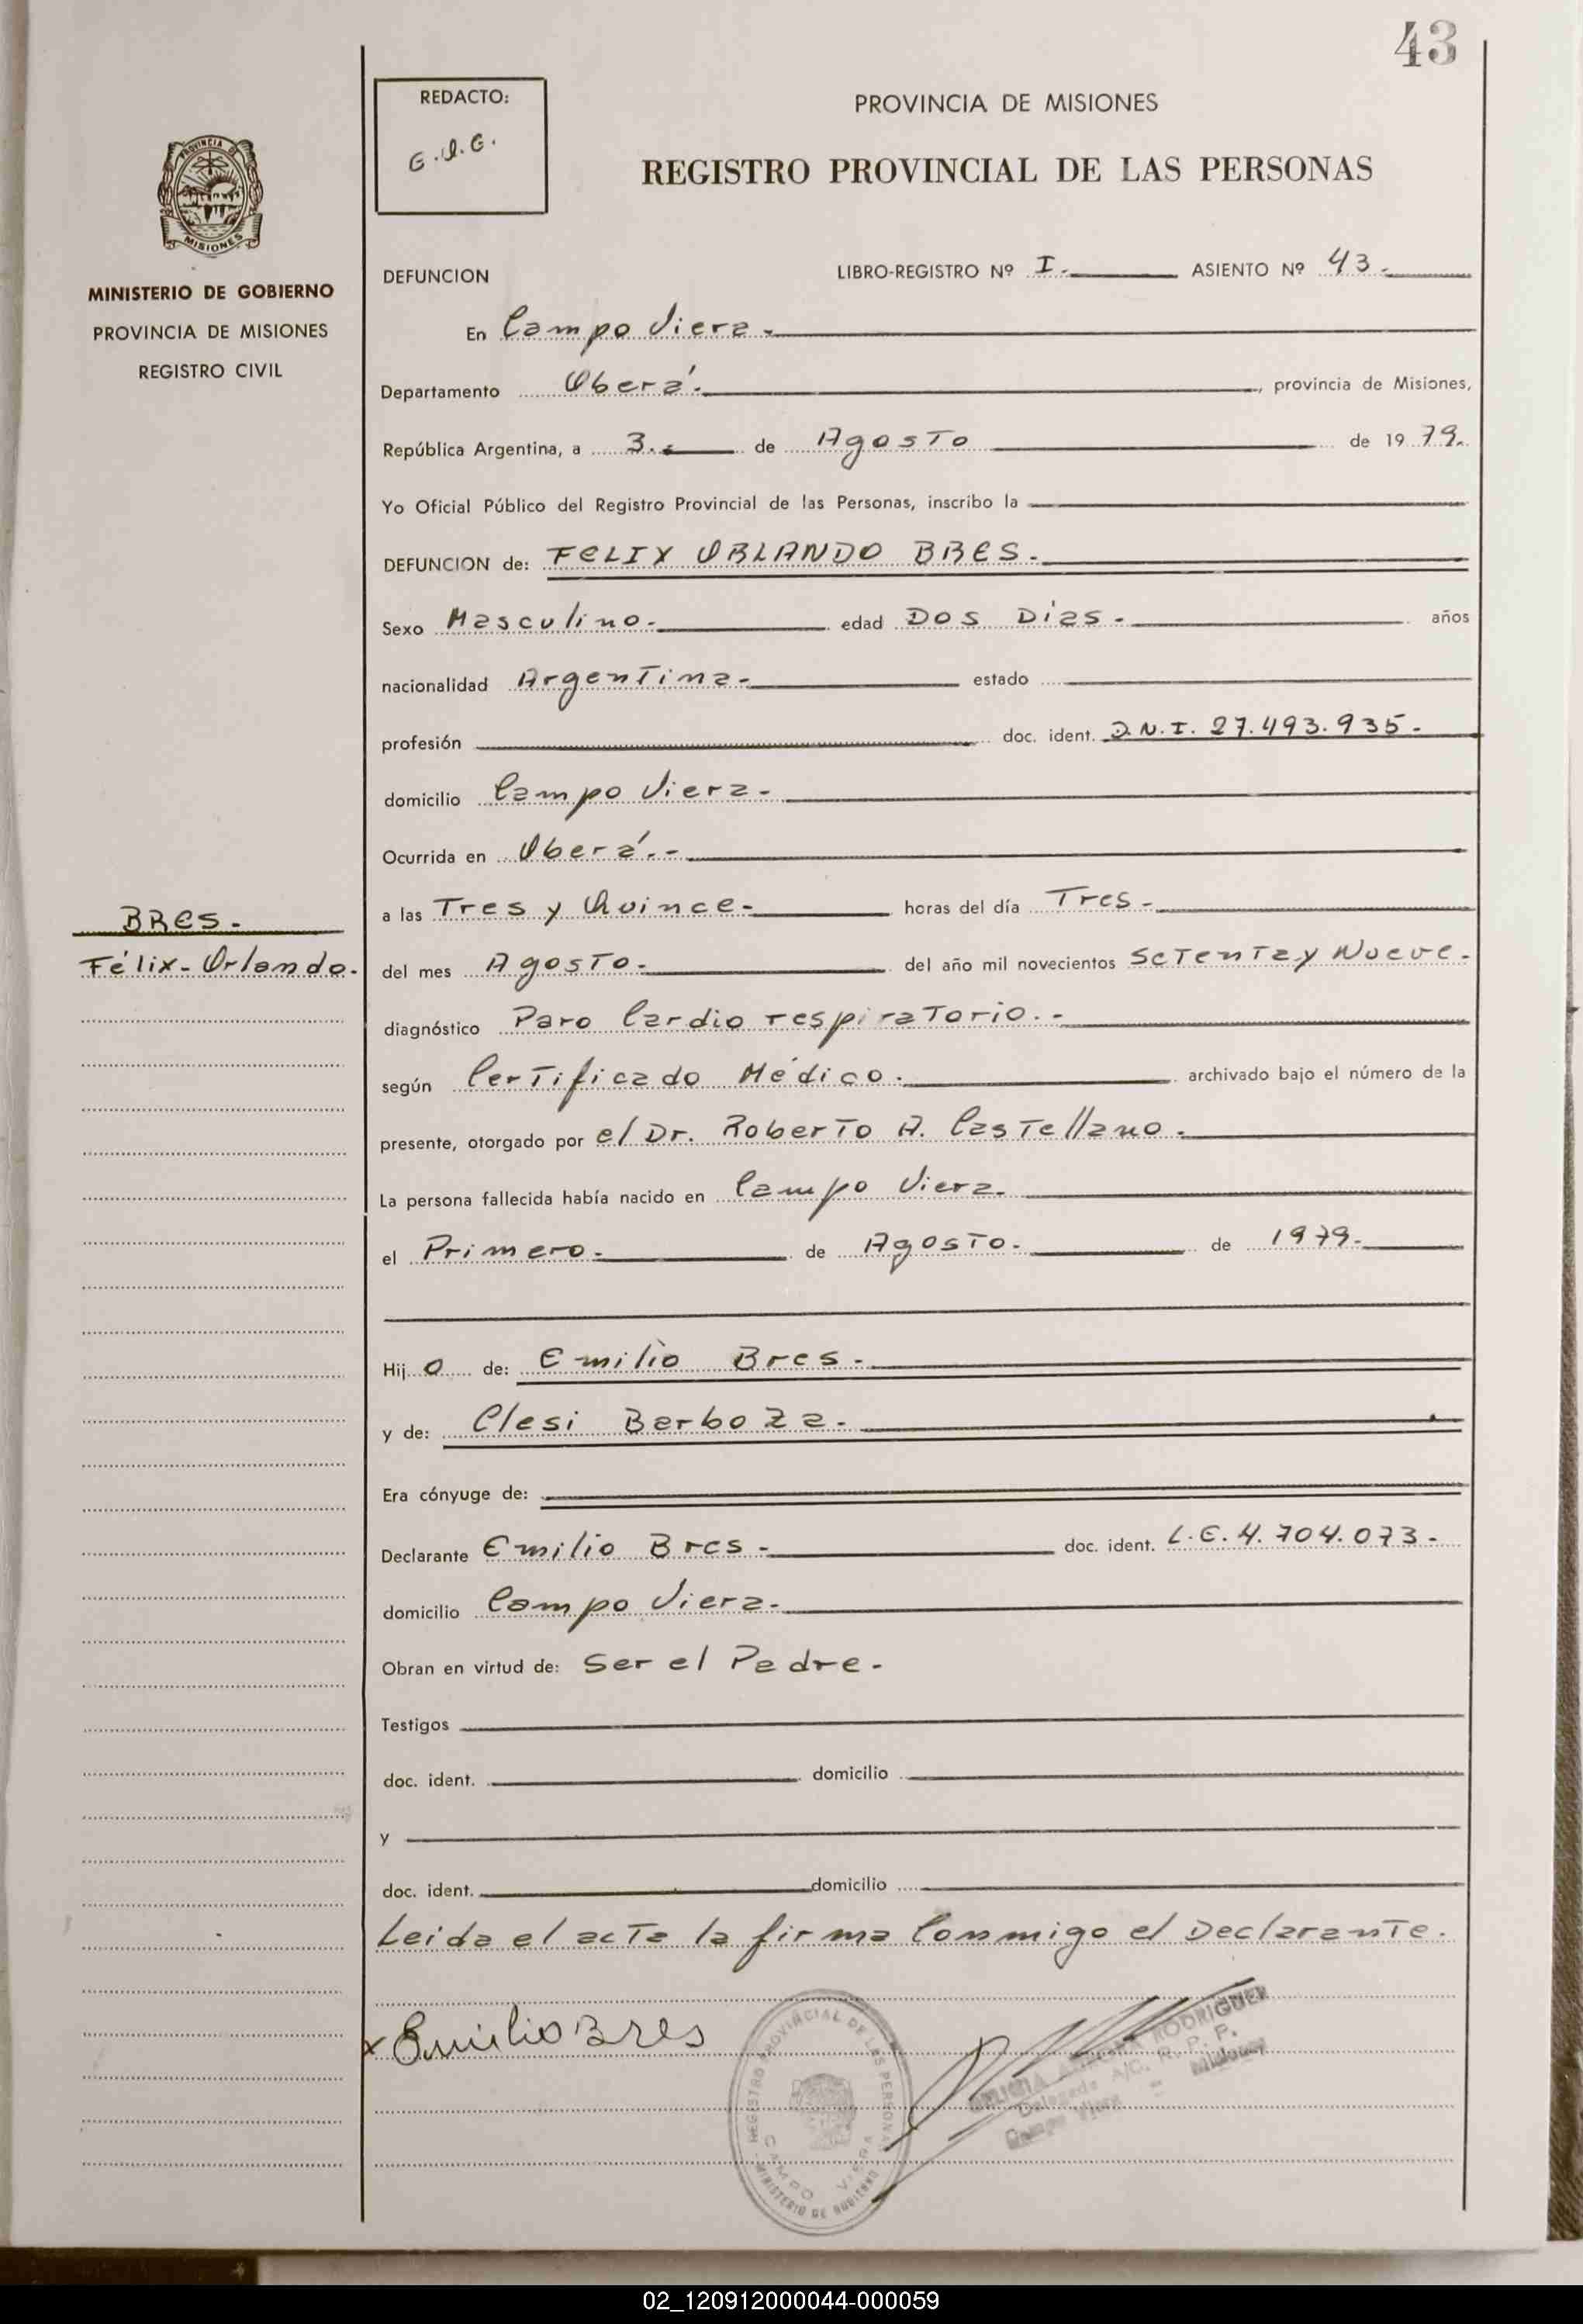 43
REDACTO:
PROVINCIA DE MISIONES
REGISTRO PROVINCIAL DE LAS PERSONAS
PROVINCIA DE
MISIONES
MINISTERIO DE GOBIERNO
PROVINCIA DE MISIONES
REGISTRO CIVIL
DEFUNCION LIBRO-REGISTRO Nº I.- ASIENTO Nº 43.-
En Campo Viera.-
Departamento Oberá.-, provincia de Misiones,
República Argentina, a 3.- de Agosto de 1979.
Yo Oficial Público del Registro Provincial de las Personas, inscribo la
DEFUNCION de: FELIX ORLANDO BRES.-
Sexo Masculino.- edad Dos Días.- años
nacionalidad Argentina.- estado
profesión doc. ident. D.N.I. 27.493.935.-
domicilio Campo Viera.-
Ocurrida en Oberá.-
BRES.-
Félix-Orlando.-
a las Tres y Quince.- horas del día Tres.-
del mes Agosto.- del año mil novecientos Setenta y Nueve.-
diagnóstico Paro Cardio respiratorio.-
según Certificado Médico.- archivado bajo el número de la
presente, otorgado por el Dr. Roberto A. Castellano.-
La persona fallecida había nacido en Campo Viera.
el Primero.- de Agosto.- de 1979.-
Hijo de: Emilio Bres.-
y de: Clesi Barboza.-
Era cónyuge de:
Declarante Emilio Bres.- doc. ident. L.E. 4.704.073.-
domicilio Campo Viera.-
Obran en virtud de: Ser el Padre.-
Testigos
doc. ident. domicilio
y
doc. ident. domicilio
Leida el acta la firma Conmigo el Declarante.
x Emilio Bres
REGISTRO PROVINCIAL DE LAS PERSONAS
CAMPO VIERA
MINISTERIO DE GOBIERNO
RODRIGUEZ
Delegada A/C. R. P. P.
Campo Viera - Misiones
02_120912000044-000059